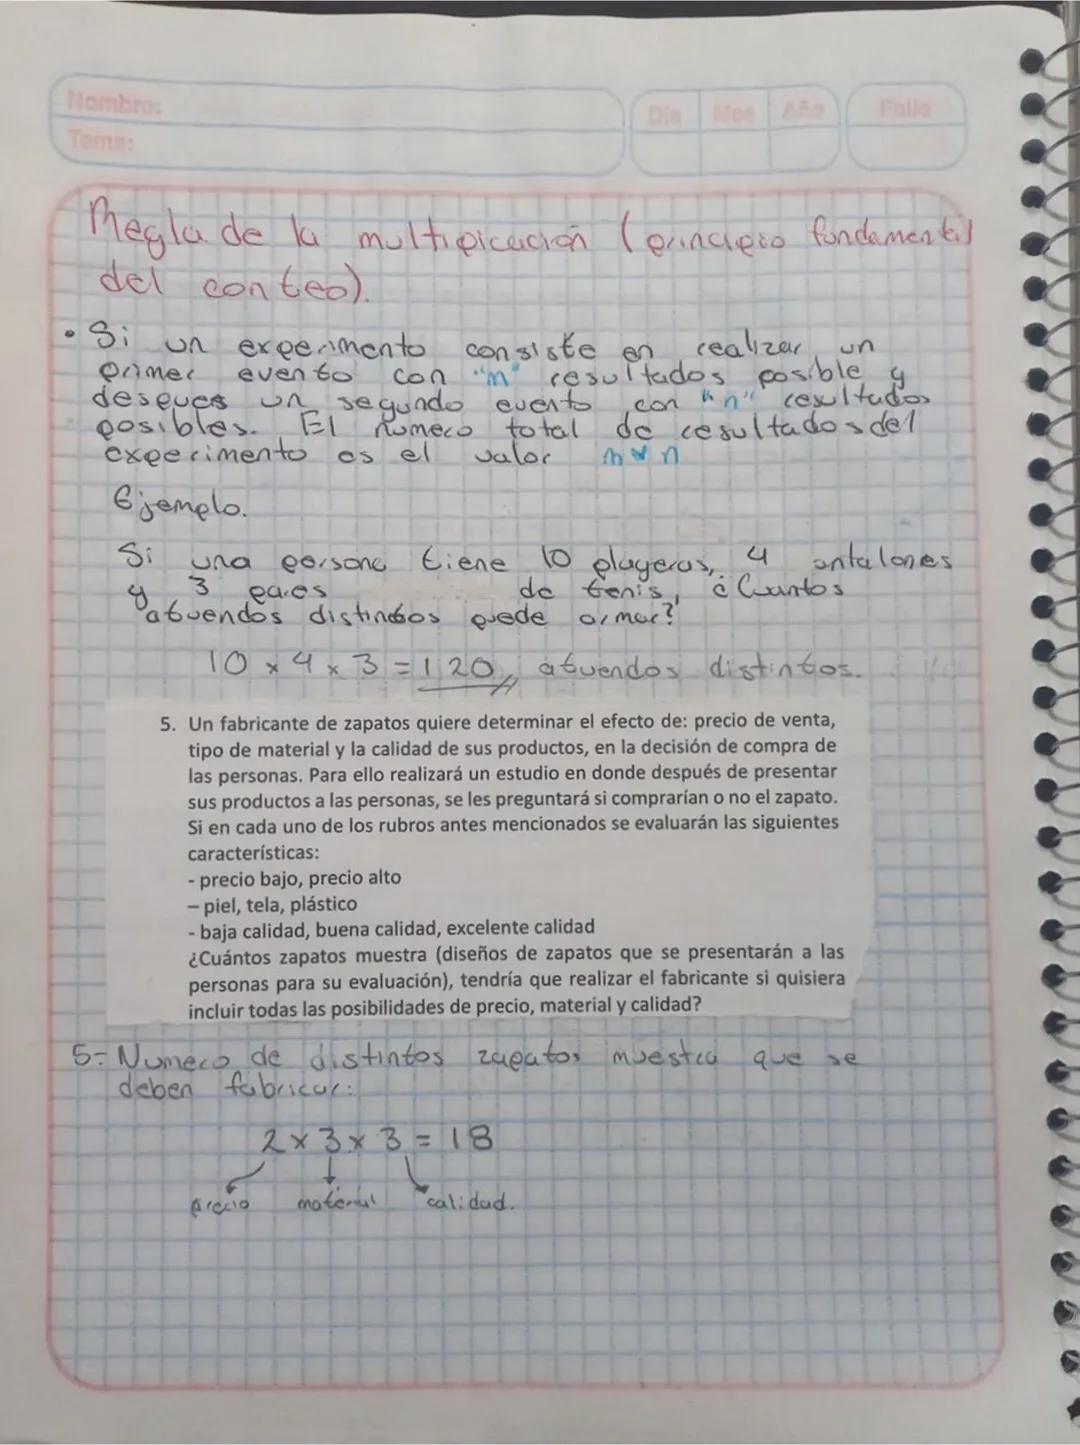 Nombre:
Tema:
Día Mes Año
Folio
Regla de la multipicación (principio fundamental
del conteo).
• Si un experimento consiste en realizar un
primer evento con "m" resultados posible y
despues un segundo evento con "n" resultados
posibles. El numero total de resultados del
experimento es el valor m*n
Ejemplo.
Si una persona tiene 10 playeras, 4 antalones
y 3 pares de tenis, ¿Cuantos
atuendos distintos puede armar?
10 x 4 x 3 = 120 atuendos distintos.
5. Un fabricante de zapatos quiere determinar el efecto de: precio de venta,
tipo de material y la calidad de sus productos, en la decisión de compra de
las personas. Para ello realizará un estudio en donde después de presentar
sus productos a las personas, se les preguntará si comprarían o no el zapato.
Si en cada uno de los rubros antes mencionados se evaluarán las siguientes
características:
- precio bajo, precio alto
– piel, tela, plástico
- baja calidad, buena calidad, excelente calidad
¿Cuántos zapatos muestra (diseños de zapatos que se presentarán a las
personas para su evaluación), tendría que realizar el fabricante si quisiera
incluir todas las posibilidades de precio, material y calidad?
5- Numero de distintos zapatos muestra que se
deben fabricar:
2 x 3 x 3 = 18
precio material calidad.